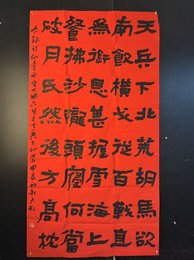 天兵下北荒胡馬欲
南飲橫戈從百戰直
為銜恩甚握雪海上
餐拂沙隴頭寢何當
破月氏然後方高枕